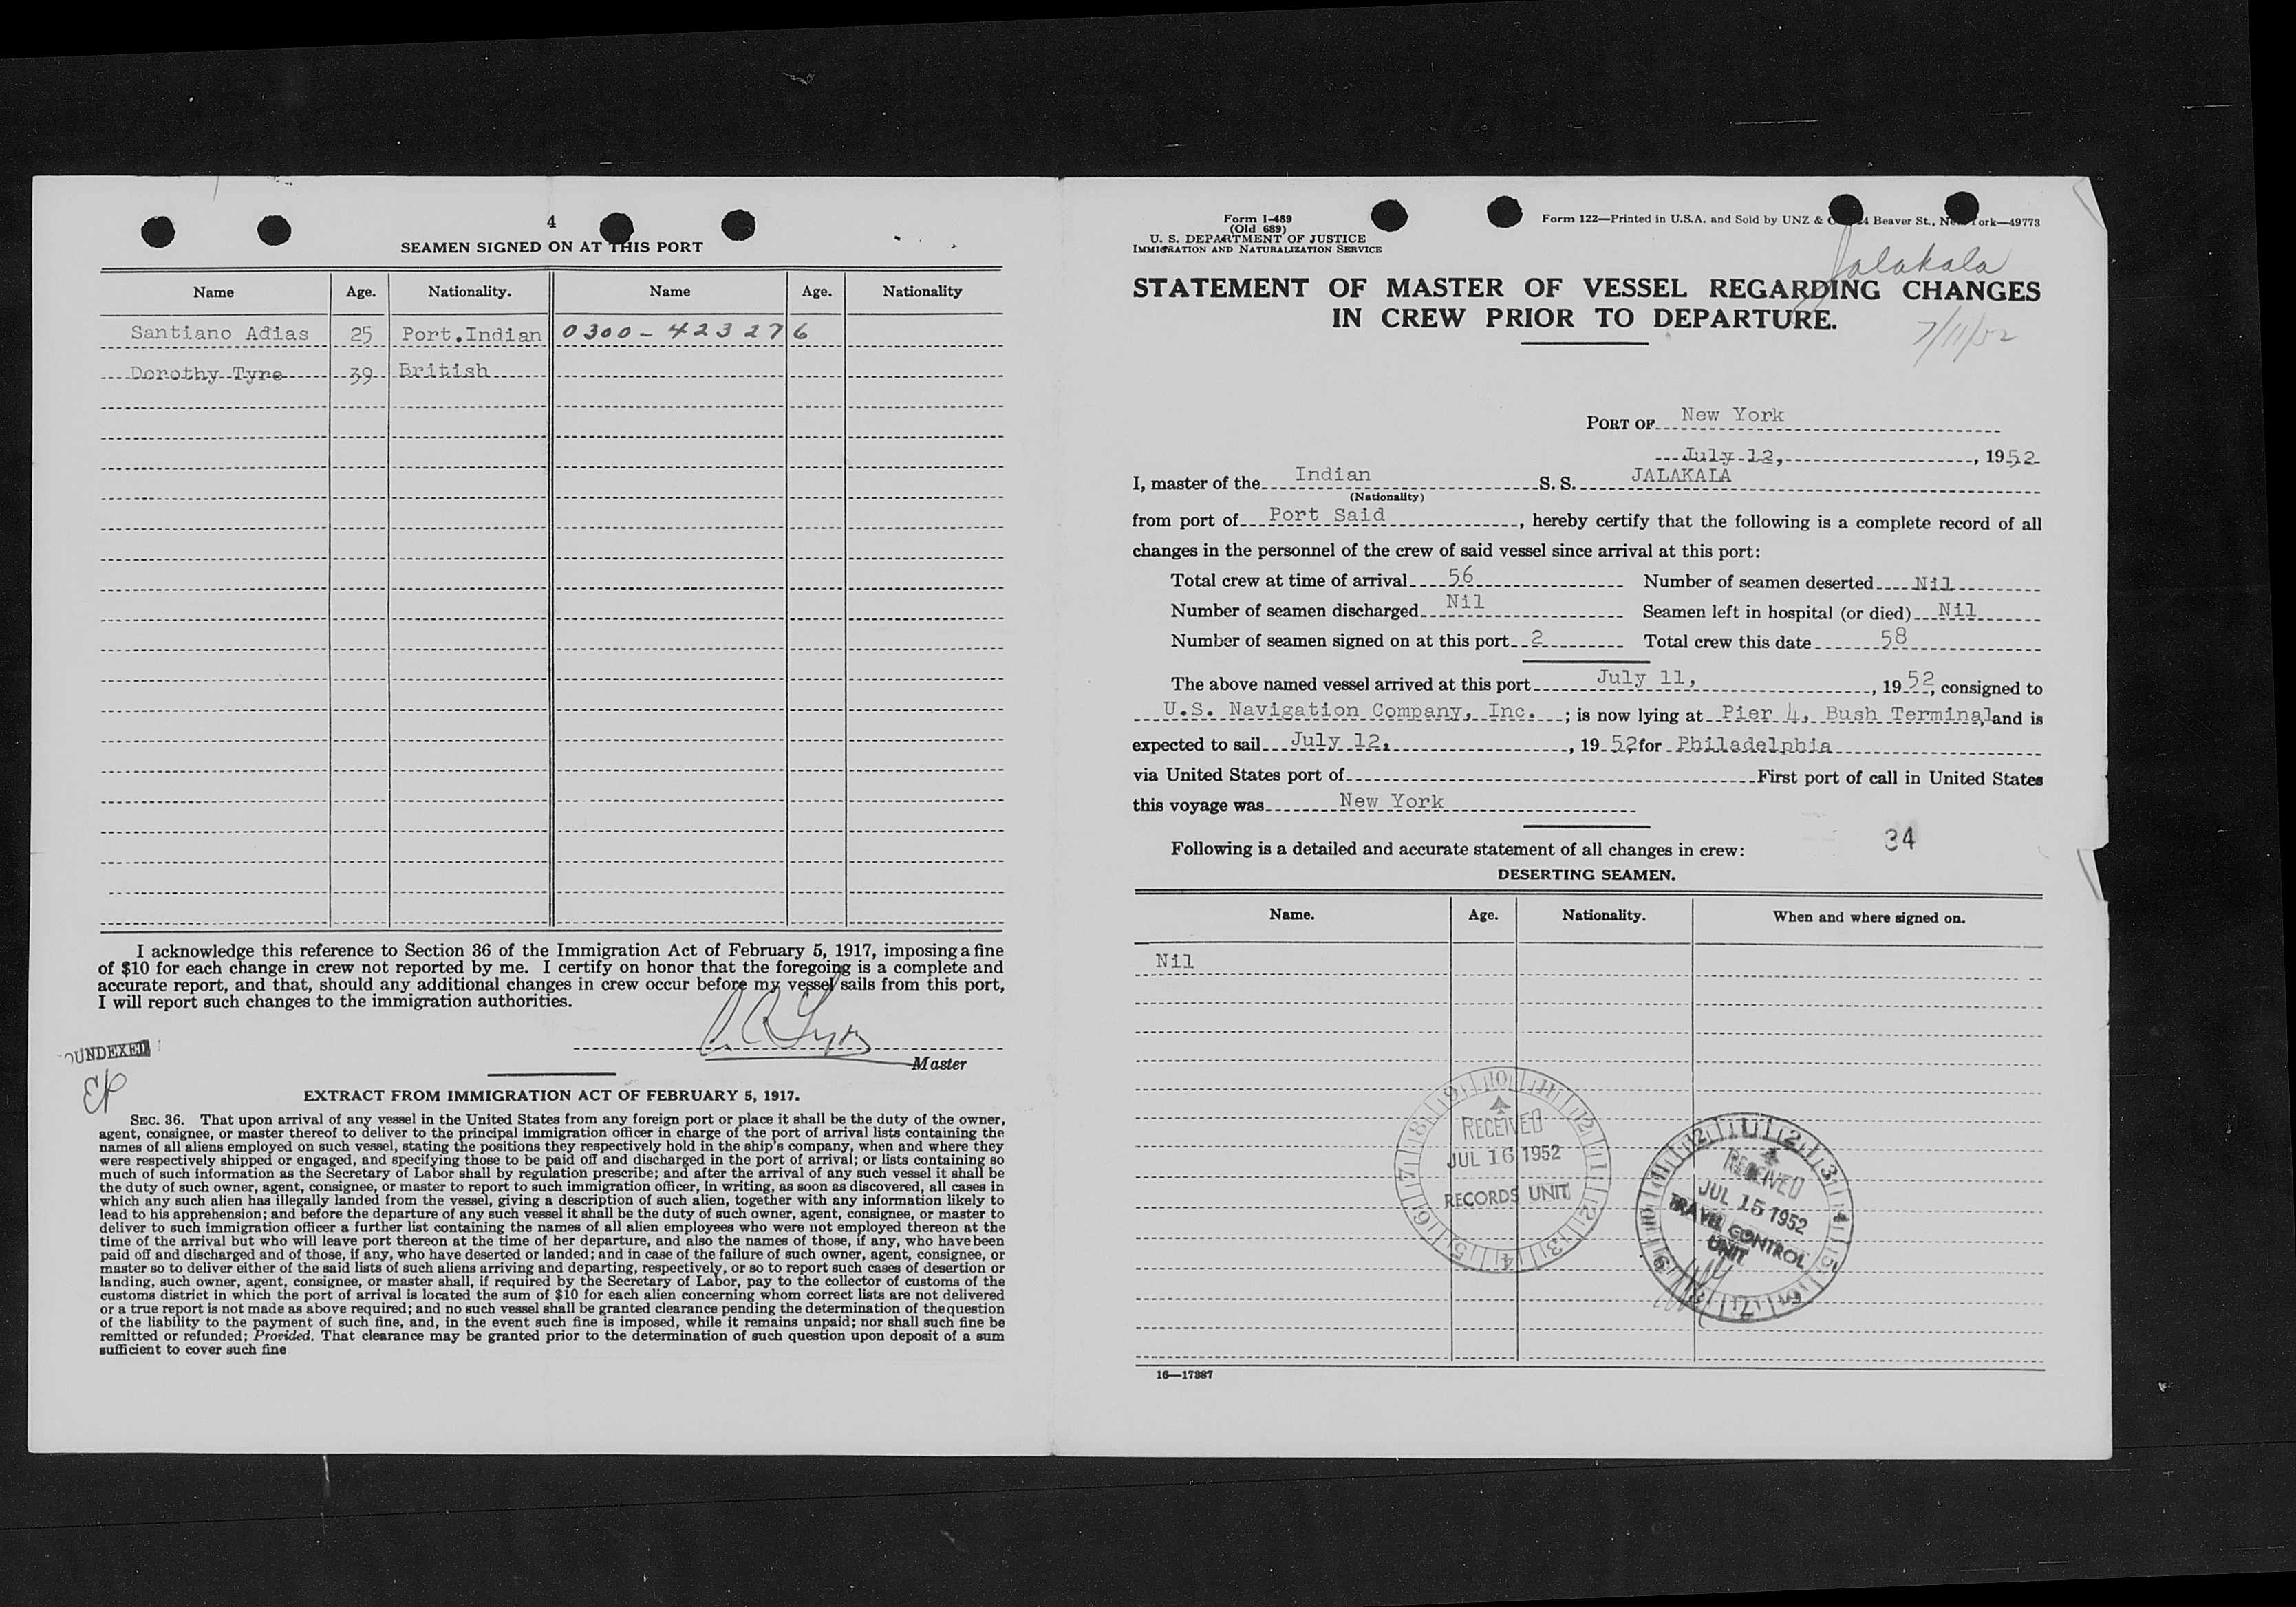 4
SEAMEN SIGNED ON AT THIS PORT
Name Age. Nationality. Name Age. Nationality
Santiano Adias 25 Port.Indian 0300-423276
Dorothy Tyre 39 British
I acknowledge this reference to Section 36 of the Immigration Act of February 5, 1917, imposing a fine
of $10 for each change in crew not reported by me. I certify on honor that the foregoing is a complete and
accurate report, and that, should any additional changes in crew occur before my vessel sails from this port,
I will report such changes to the immigration authorities.
Master
EXTRACT FROM IMMIGRATION ACT OF FEBRUARY 5, 1917.
SEC. 36. That upon arrival of any vessel in the United States from any foreign port or place it shall be the duty of the owner,
agent, consignee, or master thereof to deliver to the principal immigration officer in charge of the port of arrival lists containing the
names of all aliens employed on such vessel, stating the positions they respectively hold in the ship's company, when and where they
were respectively shipped or engaged, and specifying those to be paid off and discharged in the port of arrival; or lists containing so
much of such information as the Secretary of Labor shall by regulation prescribe; and after the arrival of any such vessel it shall be
the duty of such owner, agent, consignee, or master to report to such immigration officer, in writing, as soon as discovered, all cases in
which any such alien has illegally landed from the vessel, giving a description of such alien, together with any information likely to
lead to his apprehension; and before the departure of any such vessel it shall be the duty of such owner, agent, consignee, or master to
deliver to such immigration officer a further list containing the names of all alien employees who were not employed thereon at the
time of the arrival but who will leave port thereon at the time of her departure, and also the names of those, if any, who have been
paid off and discharged and of those, if any, who have deserted or landed; and in case of the failure of such owner, agent, consignee, or
master so to deliver either of the said lists of such aliens arriving and departing, respectively, or so to report such cases of desertion or
landing, such owner, agent, consignee, or master shall, if required by the Secretary of Labor, pay to the collector of customs of the
customs district in which the port of arrival is located the sum of $10 for each alien concerning whom correct lists are not delivered
or a true report is not made as above required; and no such vessel shall be granted clearance pending the determination of the question
of the liability to the payment of such fine, and, in the event such fine is imposed, while it remains unpaid; nor shall such fine be
remitted or refunded; Provided, That clearance may be granted prior to the determination of such question upon deposit of a sum
sufficient to cover such fine
Form I-489
(Old 689)
U. S. DEPARTMENT OF JUSTICE
IMMIGRATION AND NATURALIZATION SERVICE
Form 122—Printed in U.S.A. and Sold by UNZ & Beaver St., 49773
Jalakala
STATEMENT OF MASTER OF VESSEL REGARDING CHANGES
IN CREW PRIOR TO DEPARTURE.
7/11/52
PORT OF New York
July 12, , 1952
I, master of the Indian S. S. JALAKALA
(Nationality)
from port of Port Said , hereby certify that the following is a complete record of all
changes in the personnel of the crew of said vessel since arrival at this port:
Total crew at time of arrival 56 Number of seamen deserted Nil
Number of seamen discharged Nil Seamen left in hospital (or died) Nil
Number of seamen signed on at this port 2 Total crew this date 58
The above named vessel arrived at this port July 11, , 1952, consigned to
U.S. Navigation Company, Inc. ; is now lying at Pier 4, Bush Terminal, and is
expected to sail July 12, , 19 52, for Philadelphia
via United States port of First port of call in United States
this voyage was New York
34
Following is a detailed and accurate statement of all changes in crew:
DESERTING SEAMEN.
Name. Age. Nationality. When and where signed on.
Nil
RECEIVED
JUL 16 1952
RECORDS UNIT
RECEIVED
JUL 15 1952
TRAVEL CONTROL
UNIT
16—17387